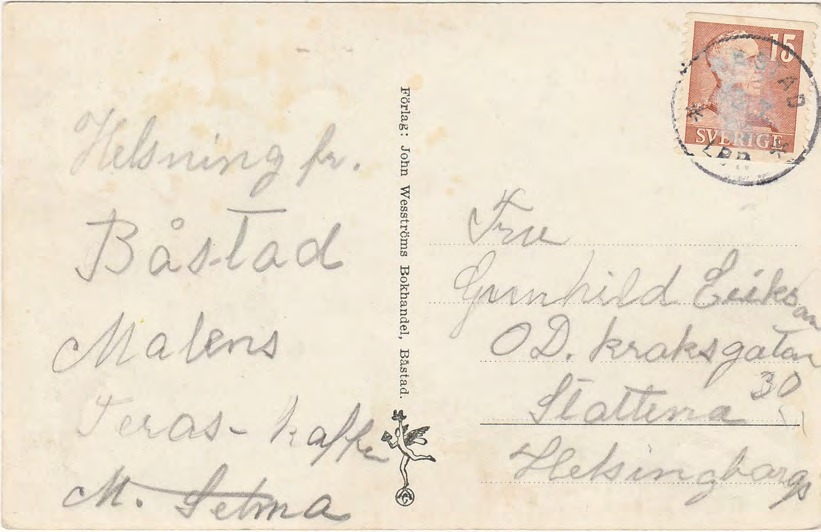 Helsning fr.
Båstad
Malens
Teras- kaffe
M. Selma
Förlag: John Wesströms Bokhandel, Båstad.
15
SVERIGE
LBR
Fru
Gunhild Eriksan
O D. kraksgatan
30
Stattena
Helsingborgs